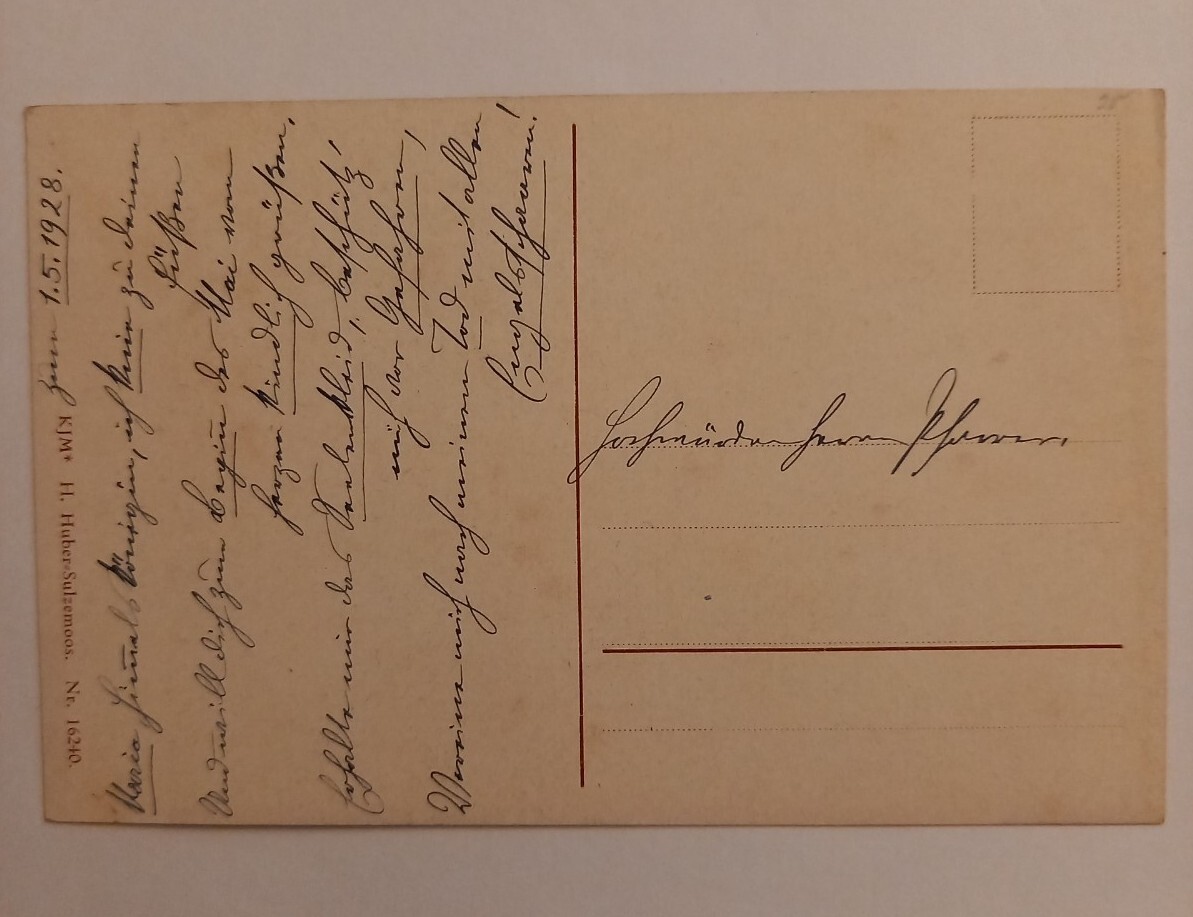 zum 1.5.1928.
Maria Himmelskönigin, ich knie zu deinen
Füßen
Und will dich zum Beginn des Mai von
Herzen kindlich grüßen,
Erhalte mir das Seelenkleid, beschütz'
mich vor Gefahren,
Vereine mich nach meinem Tod mit allen
Engelsscharen!
KJM* H. Huber=Sulzemoos. Nr. 16240.
Hochwürden Herrn Pfarrer.
25